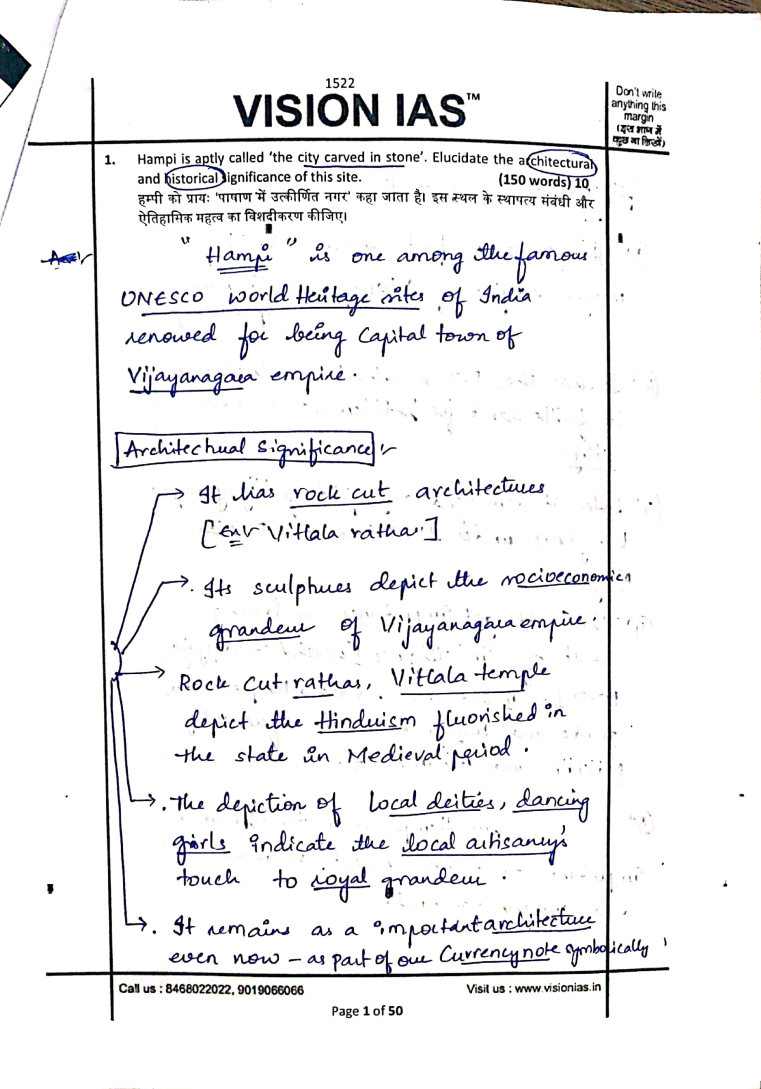 1522
VISION IAS™
Don't write
anything this
margin
(इस भाग में
कुछ ना लिखें)
1. Hampi is aptly called 'the city carved in stone'. Elucidate the architectural
and historical significance of this site. (150 words) 10
हम्पी को प्रायः 'पाषाण में उत्कीर्णित नगर' कहा जाता है। इस स्थल के स्थापत्य संबंधी और
ऐतिहासिक महत्व का विशदीकरण कीजिए।
"Hampi" is one among the famous
UNESCO World Heritage sites of India
renowed for being Capital town of
Vijayanagara empire.
Architechual Significance
→ It has rock cut architectures
[Vitlala ratha]
→. Its sculphues depict the socioeconomics
grandeur of Vijayanagara empire.
→ Rock cut rathas, Vitlala temple
depict the Hinduism fluorished in
the state in Medieval period.
→. The depiction of local deities, dancing
girls indicate the local artisanry's
touch to royal grandeur.
→. It remains as a important architecture
even now – as part of our Currency note symbolically
Call us : 8468022022, 9019066066 Visit us : www.visionias.in
Page 1 of 50